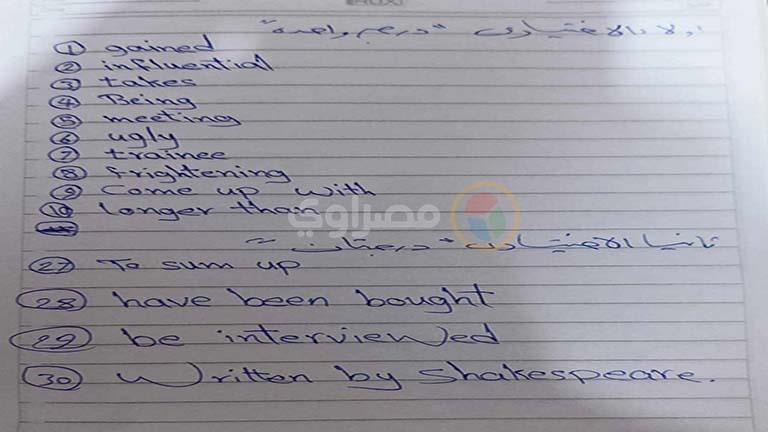 اولا الاختيارى "درجه واحدة"
① gained
② influential
③ takes
④ Being
⑤ meeting
⑥ ugly
⑦ trainee
⑧ frightening
⑨ Come up with
⑩ longer than
مصراوي
ثانيا الاختيارى "درجتان"
27 To sum up
28 have been bought
29 be interviewed
30 Written by Shakespeare.